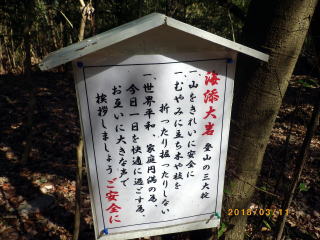 海添大岩 登山の三大掟
一、山をきれいに安全に
一、むやみに立ち木や枝を
折ったり掘ったりしない
一、世界平和、家庭円満の為、
今日一日を快適に過ごす為、
お互いに大きな声で
挨拶しましょう ご安全に
2018/03/11